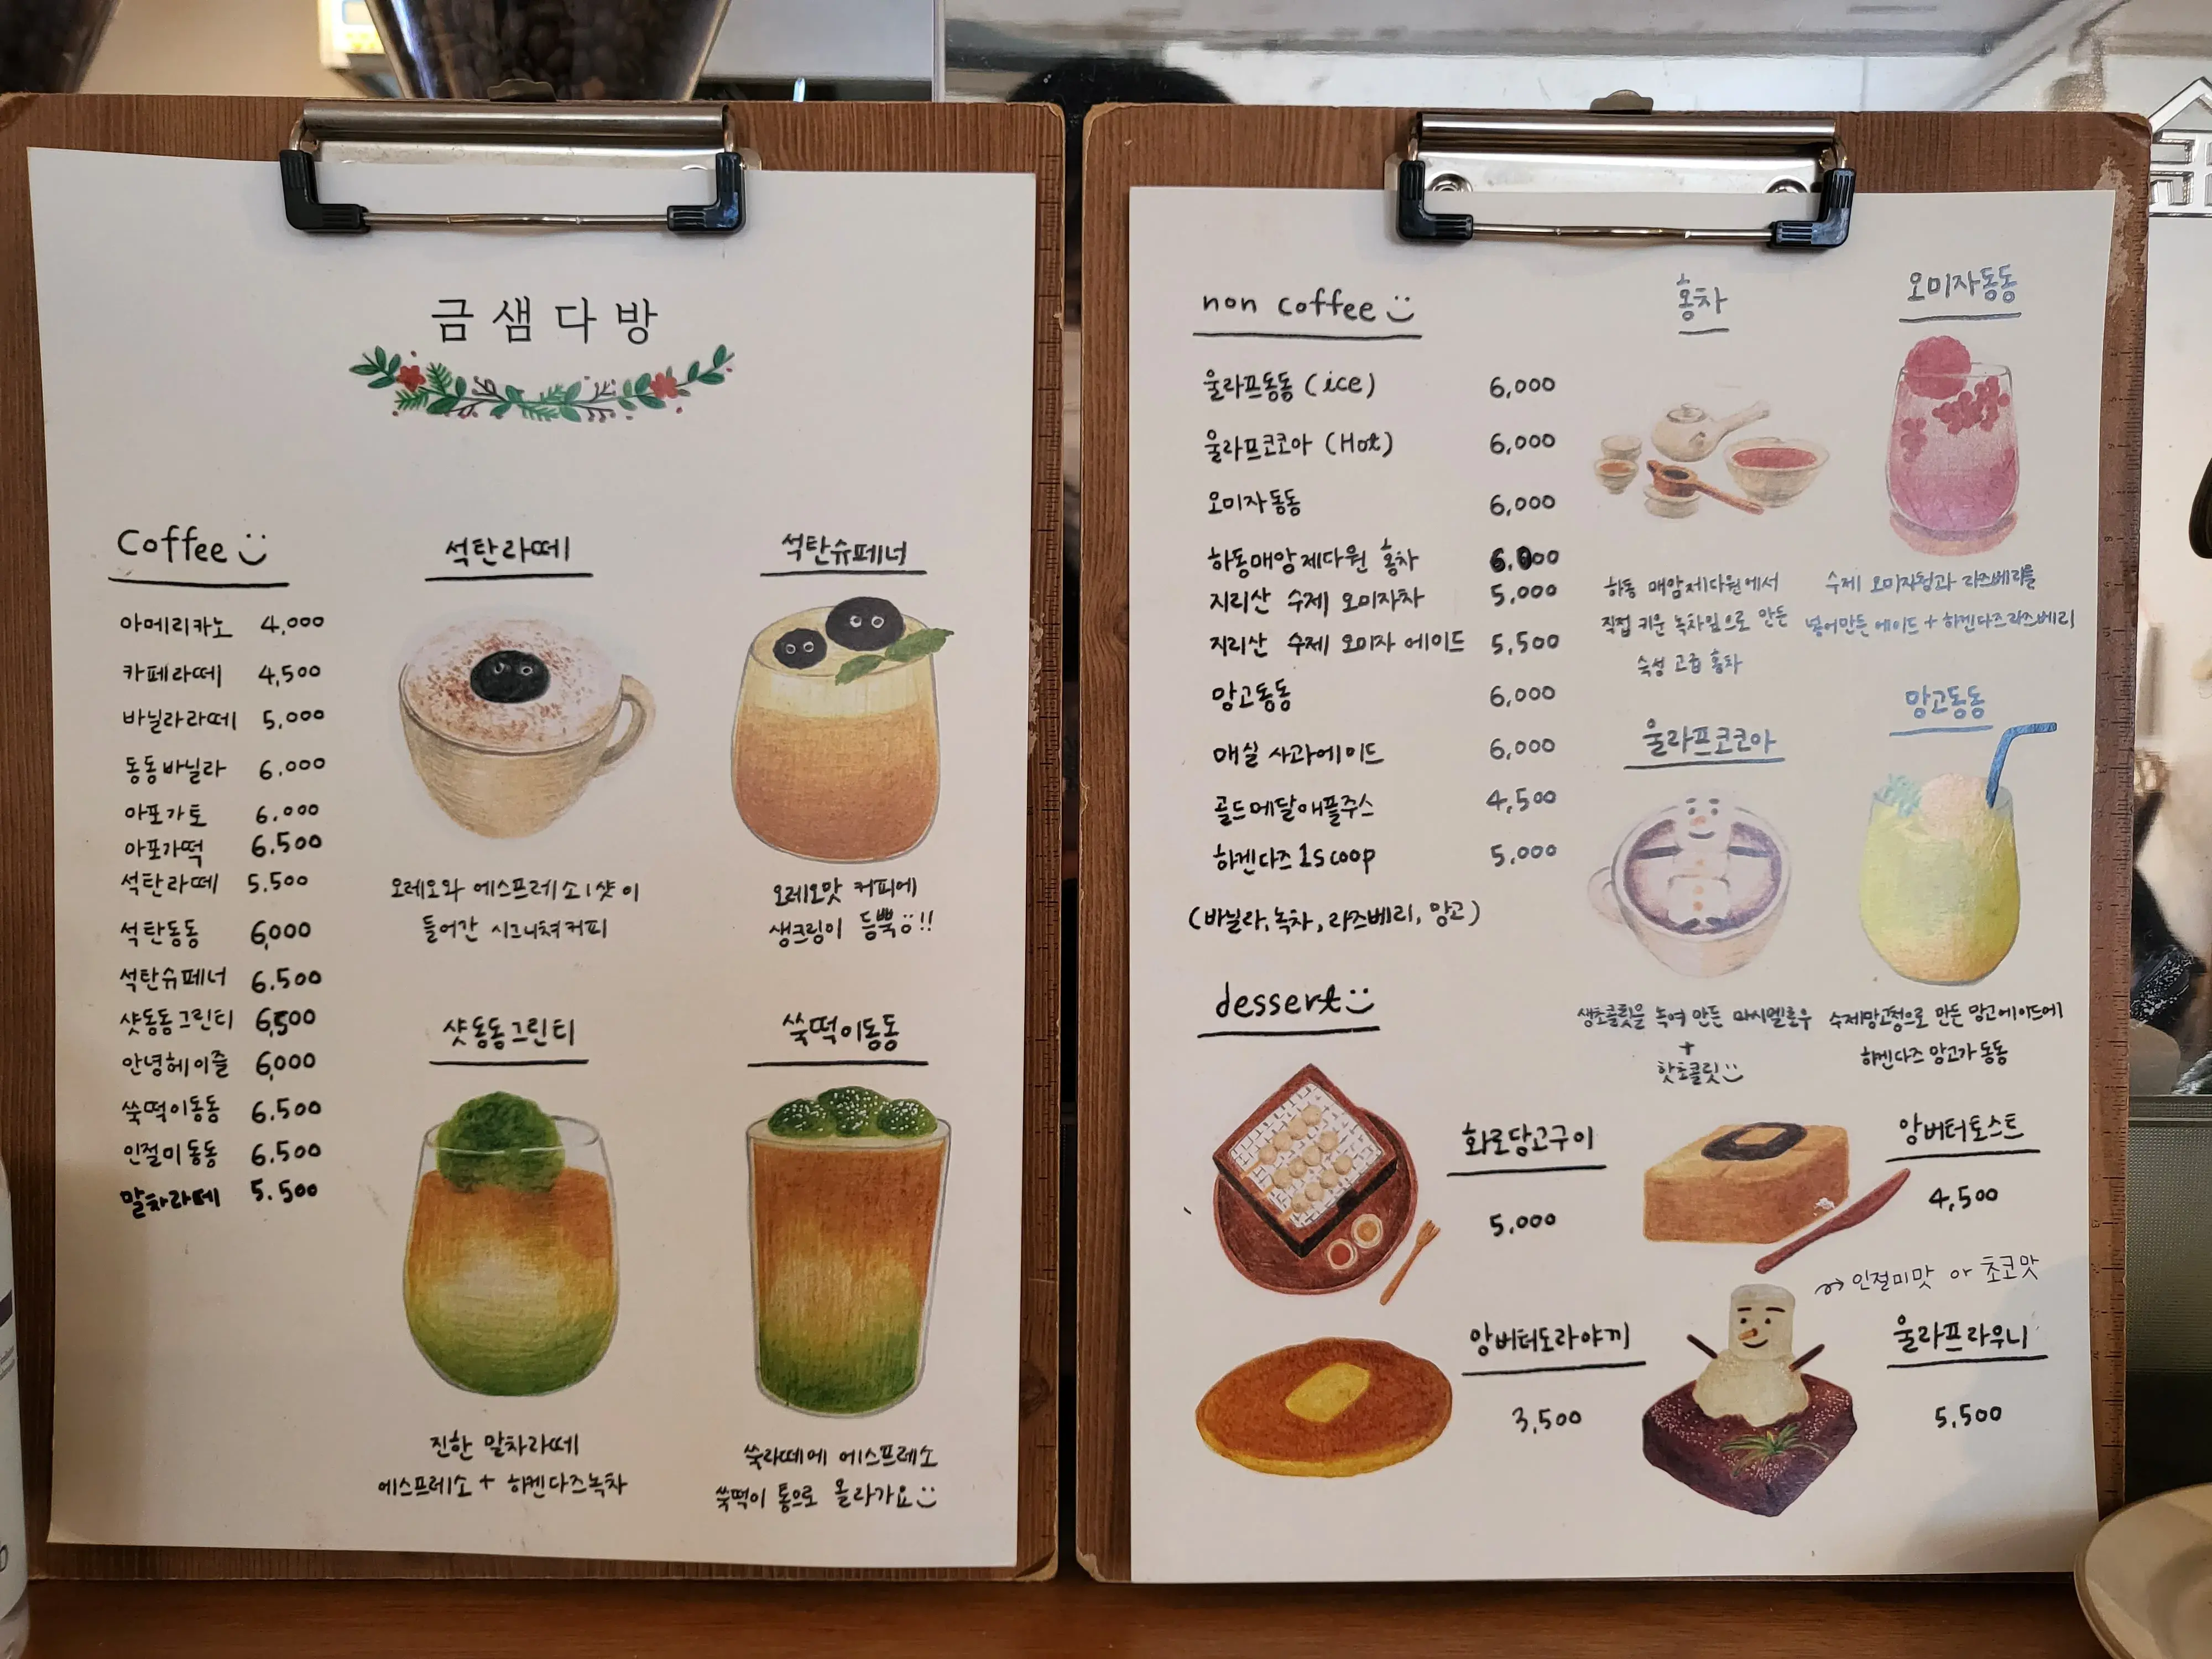 금샘다방
Coffee
아메리카노 4,000
카페라떼 4,500
바닐라라떼 5,000
동동바닐라 6,000
아포가토 6,000
아포가떡 6.500
석탄라떼 5.500
석탄동동 6,000
석탄슈페너 6.500
샷동동그린티 6,500
안녕헤이즐 6,000
쑥떡이동동 6.500
인절미동동 6.500
말차라떼 5.500
석탄라떼
오레오와 에스프레소1샷이
들어간 시그니쳐커피
석탄슈페너
오레오맛 커피에
생크림이 듬뿍!!
샷동동그린티
진한 말차라떼
에스프레소 + 하겐다즈녹차
쑥떡이동동
쑥라떼에 에스프레소
쑥떡이 통으로 올라가요
non coffee
울라프동동 (ice) 6,000
울라프코코아 (Hot) 6,000
오미자동동 6,000
하동매암제다원 홍차 6,000
지리산 수제 오미자차 5,000
지리산 수제 오미자 에이드 5,500
망고동동 6,000
매실 사과에이드 6,000
골드메달애플주스 4,500
하겐다즈 1scoop 5,000
(바닐라, 녹차, 라즈베리, 망고)
홍차
하동 매암제다원에서
직접 키운 녹차잎으로 만든
숙성 고급 홍차
오미자동동
수제 오미자청과 라즈베리를
넣어만든 에이드 + 하겐다즈라즈베리
울라프코코아
생초콜릿을 녹여 만든 마시멜로우
+
핫초콜릿
망고동동
수제망고청으로 만든 망고에이드에
하겐다즈 망고가 동동
dessert
화로당고구이
5,000
앙버터토스트
4,500
앙버터도라야끼
3,500
→ 인절미맛 or 초코맛
울라프라우니
5,500